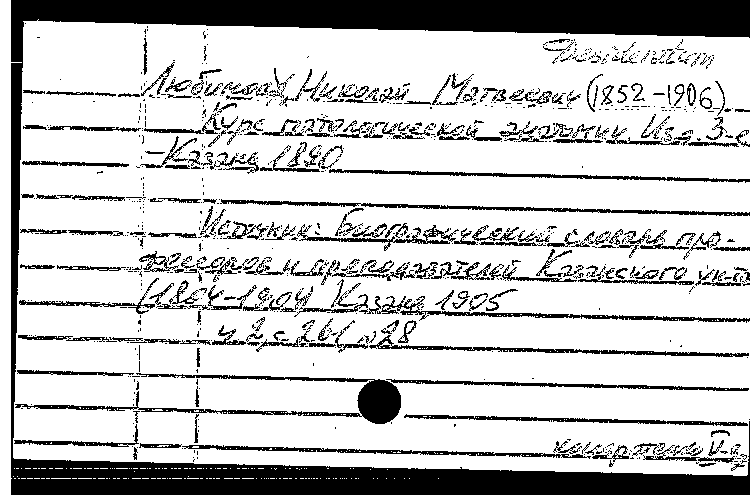 Desideratum
Любимов, Николай Матвеевич (1852-1906)
Курс патологической анатомии. Изд. 3-е
-Казань, 1890
Источник: Биографический словарь про-
фессоров и преподавателей Казанского ун-та
(1804-1904) Казань, 1905
ч. 2, с. 261, №28